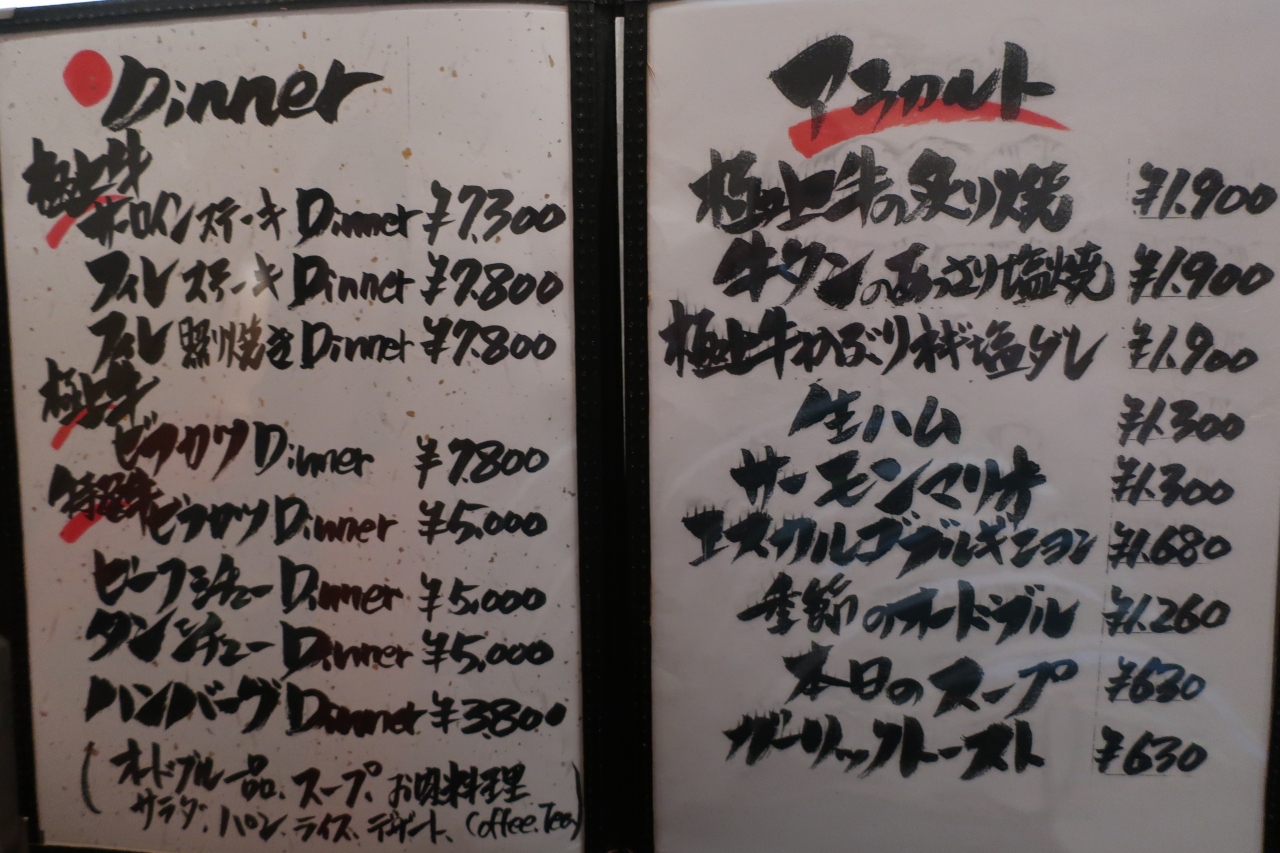 Dinner
極上牛
サーロインステーキ Dinner ¥7,300
フィレステーキ Dinner ¥7,800
フィレ照り焼き Dinner ¥7,800
極上牛
ビフカツ Dinner ¥7,800
特選牛ビフカツ Dinner ¥5,000
ビーフシチュー Dinner ¥5,000
タンシチュー Dinner ¥5,000
ハンバーグ Dinner ¥3,800
(オードブル一品、スープ、お肉料理
サラダ、パン、ライス、デザート、Coffee.Tea)
アラカルト
極上牛の炙り焼 ¥1,900
牛タンのあっさり塩焼 ¥1,900
極上牛かぶりネギ塩ダレ ¥1,900
生ハム ¥1,300
サーモンマリネ ¥1,300
エスカルゴブルギニヨン ¥1,680
季節のオードブル ¥1,260
本日のスープ ¥630
ガーリックトースト ¥630